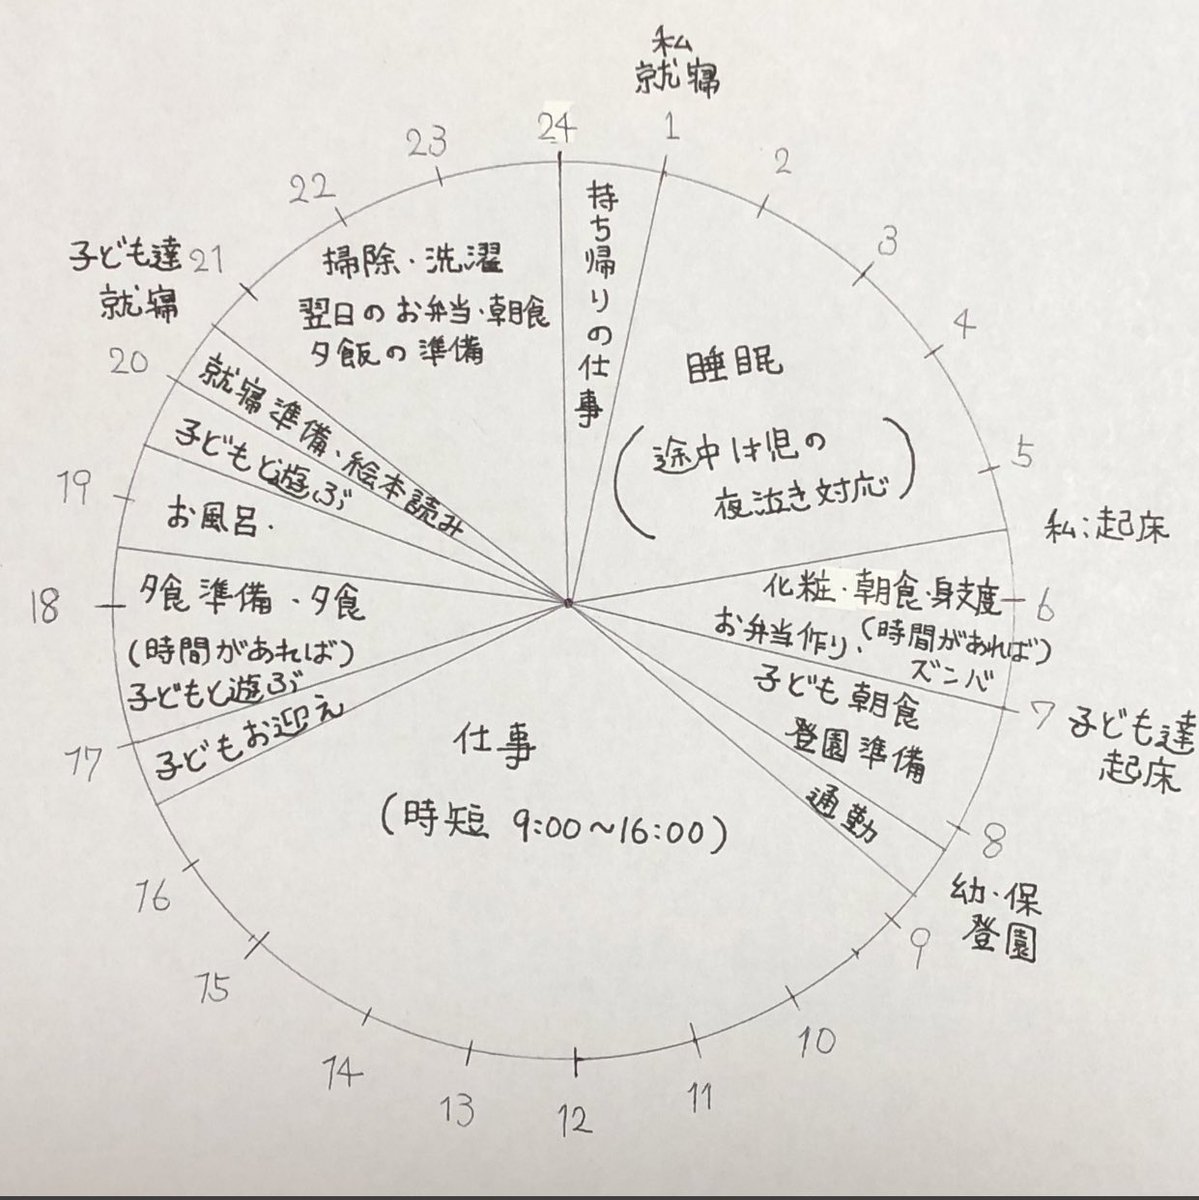 私
就寝
24
1
2
3
4
5
6
7
8
9
10
11
12
13
14
15
16
17
18
19
20
21
22
23
持ち帰りの仕事
睡眠
(途中は児の
夜泣き対応)
私:起床
化粧・朝食・身支度
お弁当作り、(時間があれば)
ズンバ
子ども達
起床
子ども朝食
登園準備
通勤
幼・保
登園
仕事
(時短 9:00~16:00)
子どもお迎え
夕食準備・夕食
(時間があれば)
子どもと遊ぶ
お風呂.
子どもと遊ぶ
就寝準備、絵本読み
子ども達
就寝
掃除・洗濯
翌日のお弁当・朝食
夕飯の準備